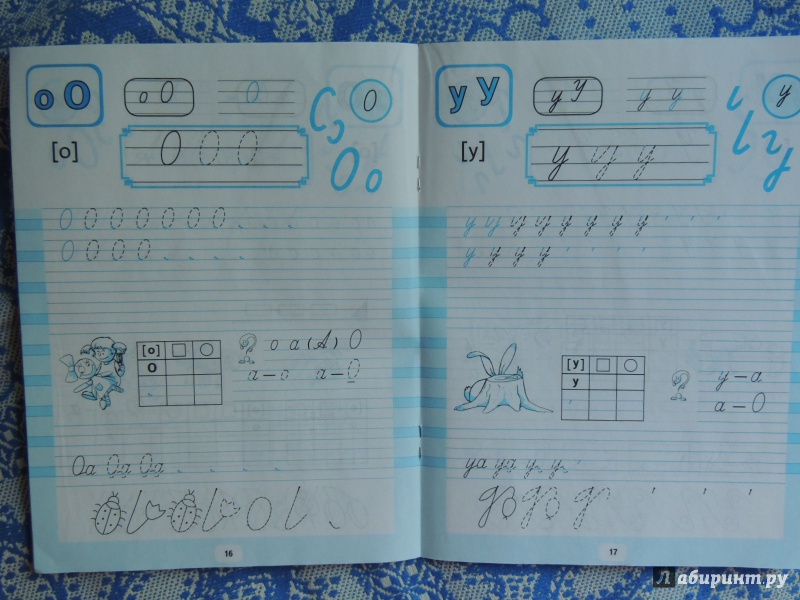 о О
о О
О
О
[о]
О О О
О о
О О О О О О О
О О О О
[о]
О
о а (А) О
а – о а – О
Оа Оа Оа
16
у У
у У
у у
у
[у]
у у у
у у у у у у у у
у у у у
[у]
у
у – а
а – О
уа уа у у
17
Лабиринт.ру